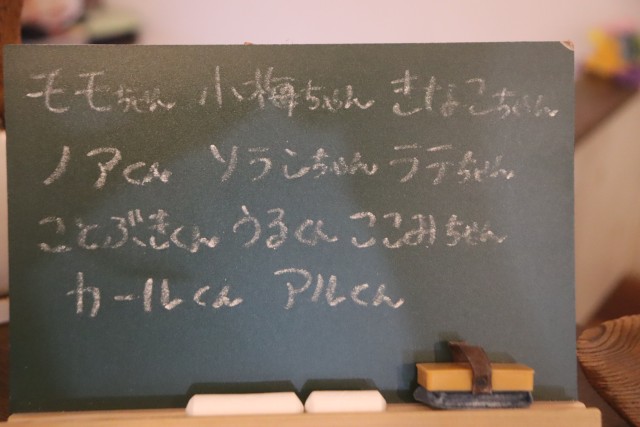 モモちゃん 小梅ちゃん きなこちゃん
ノアくん ソランちゃん ラテちゃん
ことぶきくん うるくん ここみちゃん
カールくん アルくん